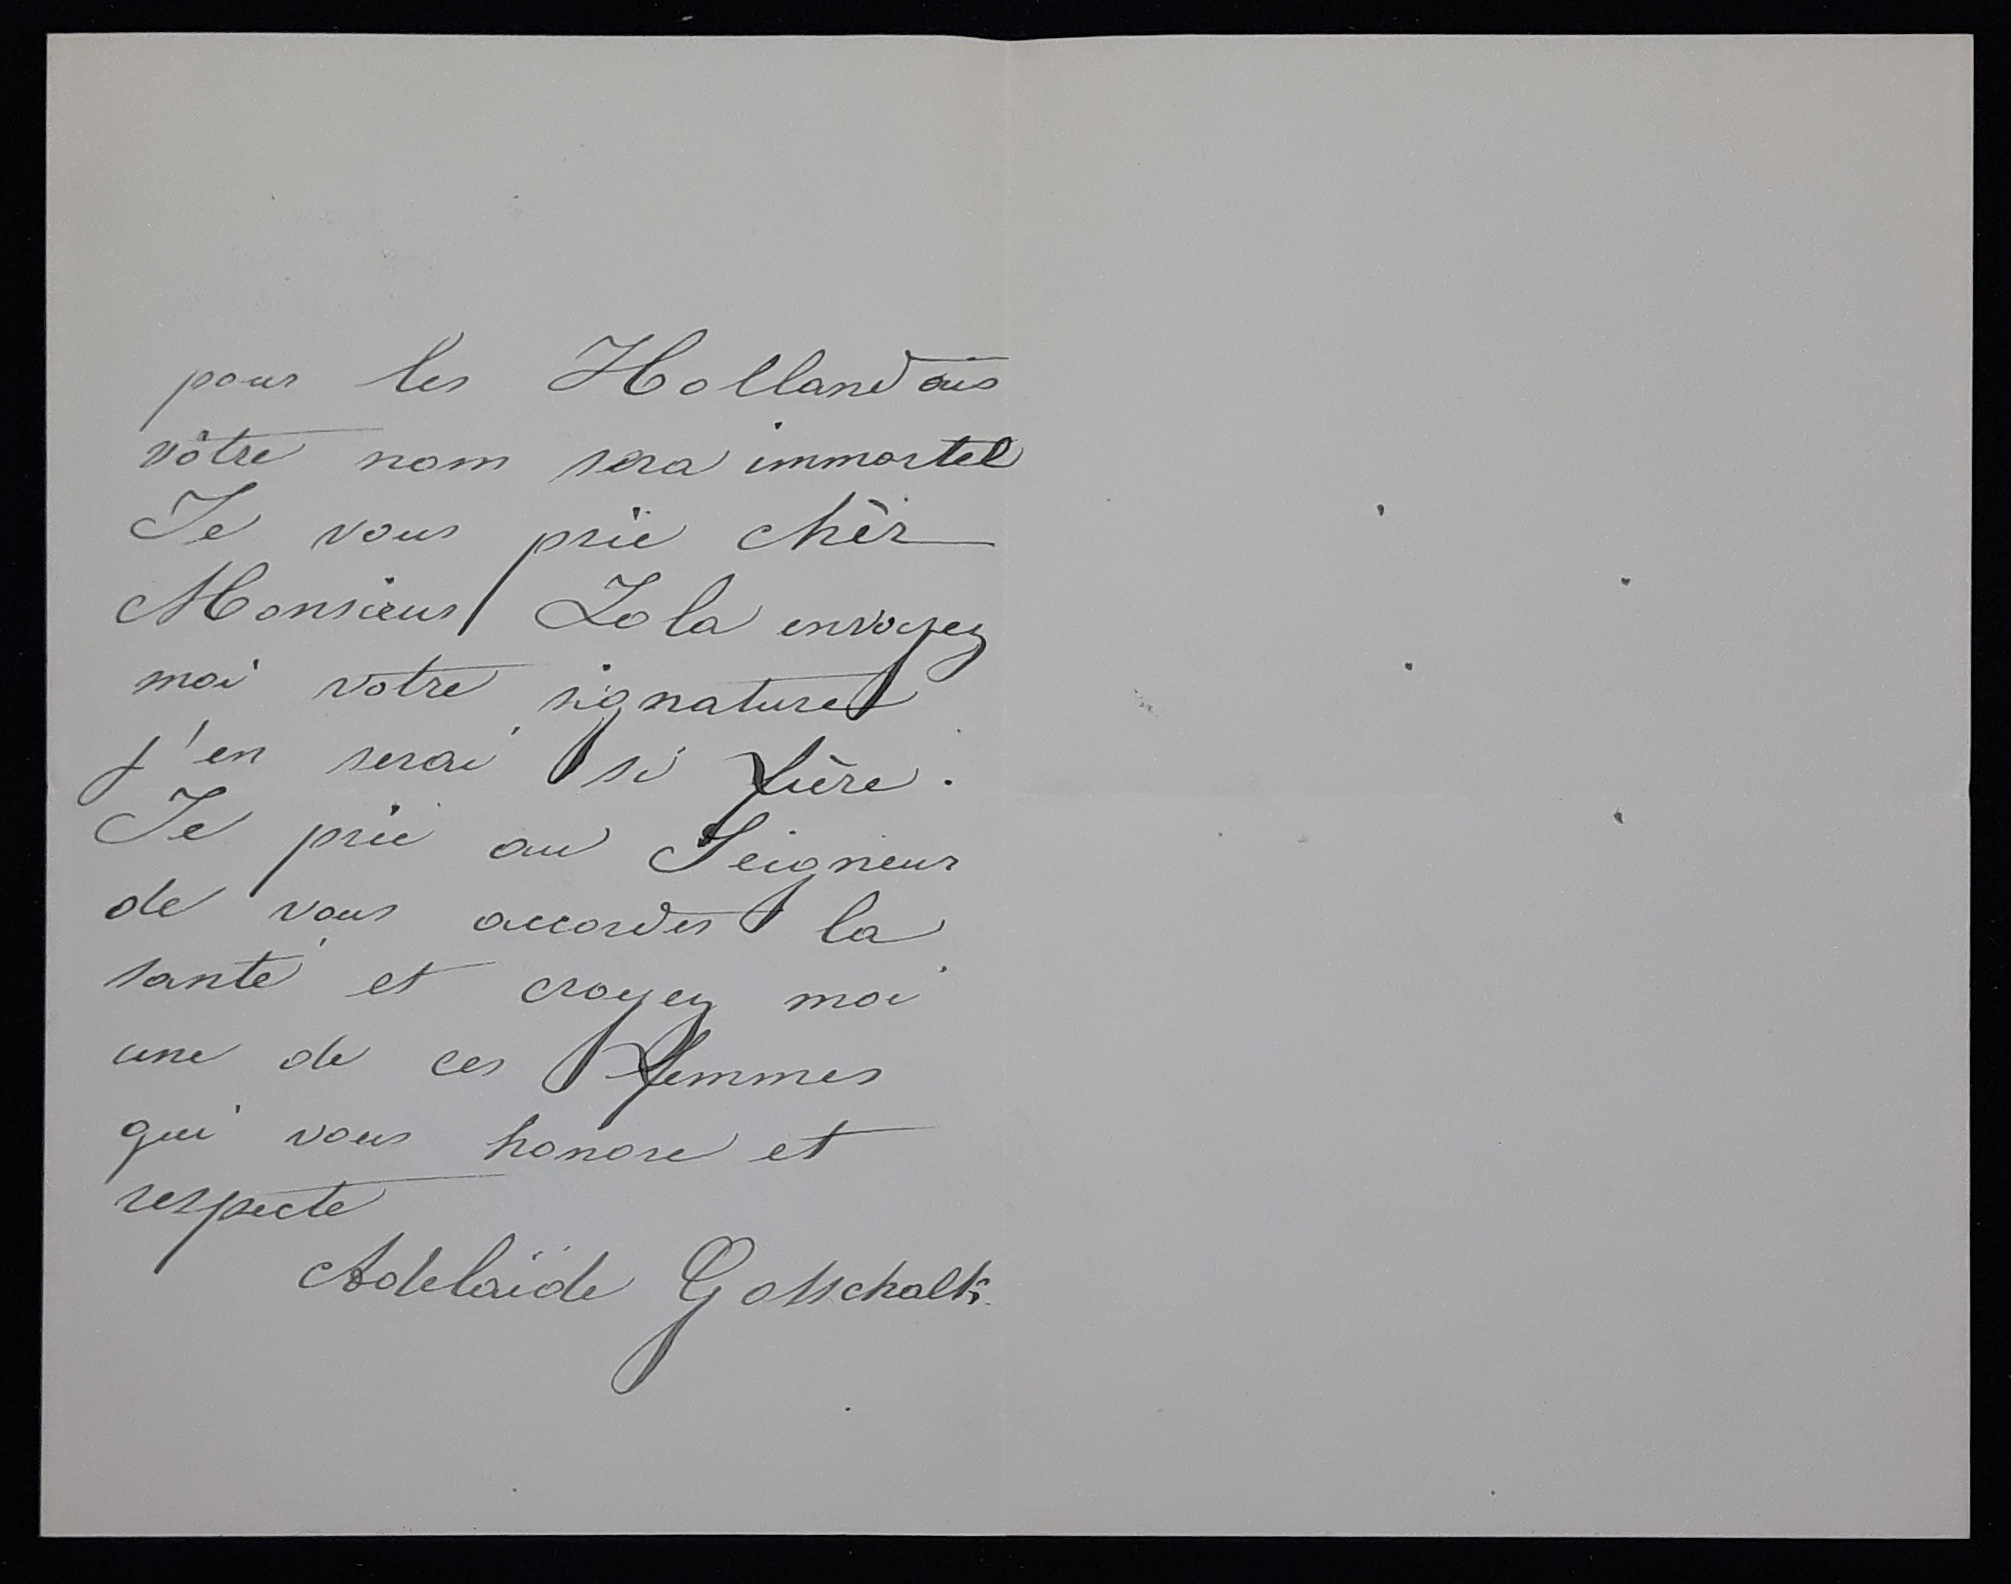 pour les Hollandais
vôtre nom sera immortel
Je vous prie chèr
Monsieur Zola envoyez
moi votre signature
j'en serai si fière.
Je prie au Seigneur
de vous accorder la
santé et croyez moi
une de ces femmes
qui vous honore et
respecte
Adelaïde Gottschalk.